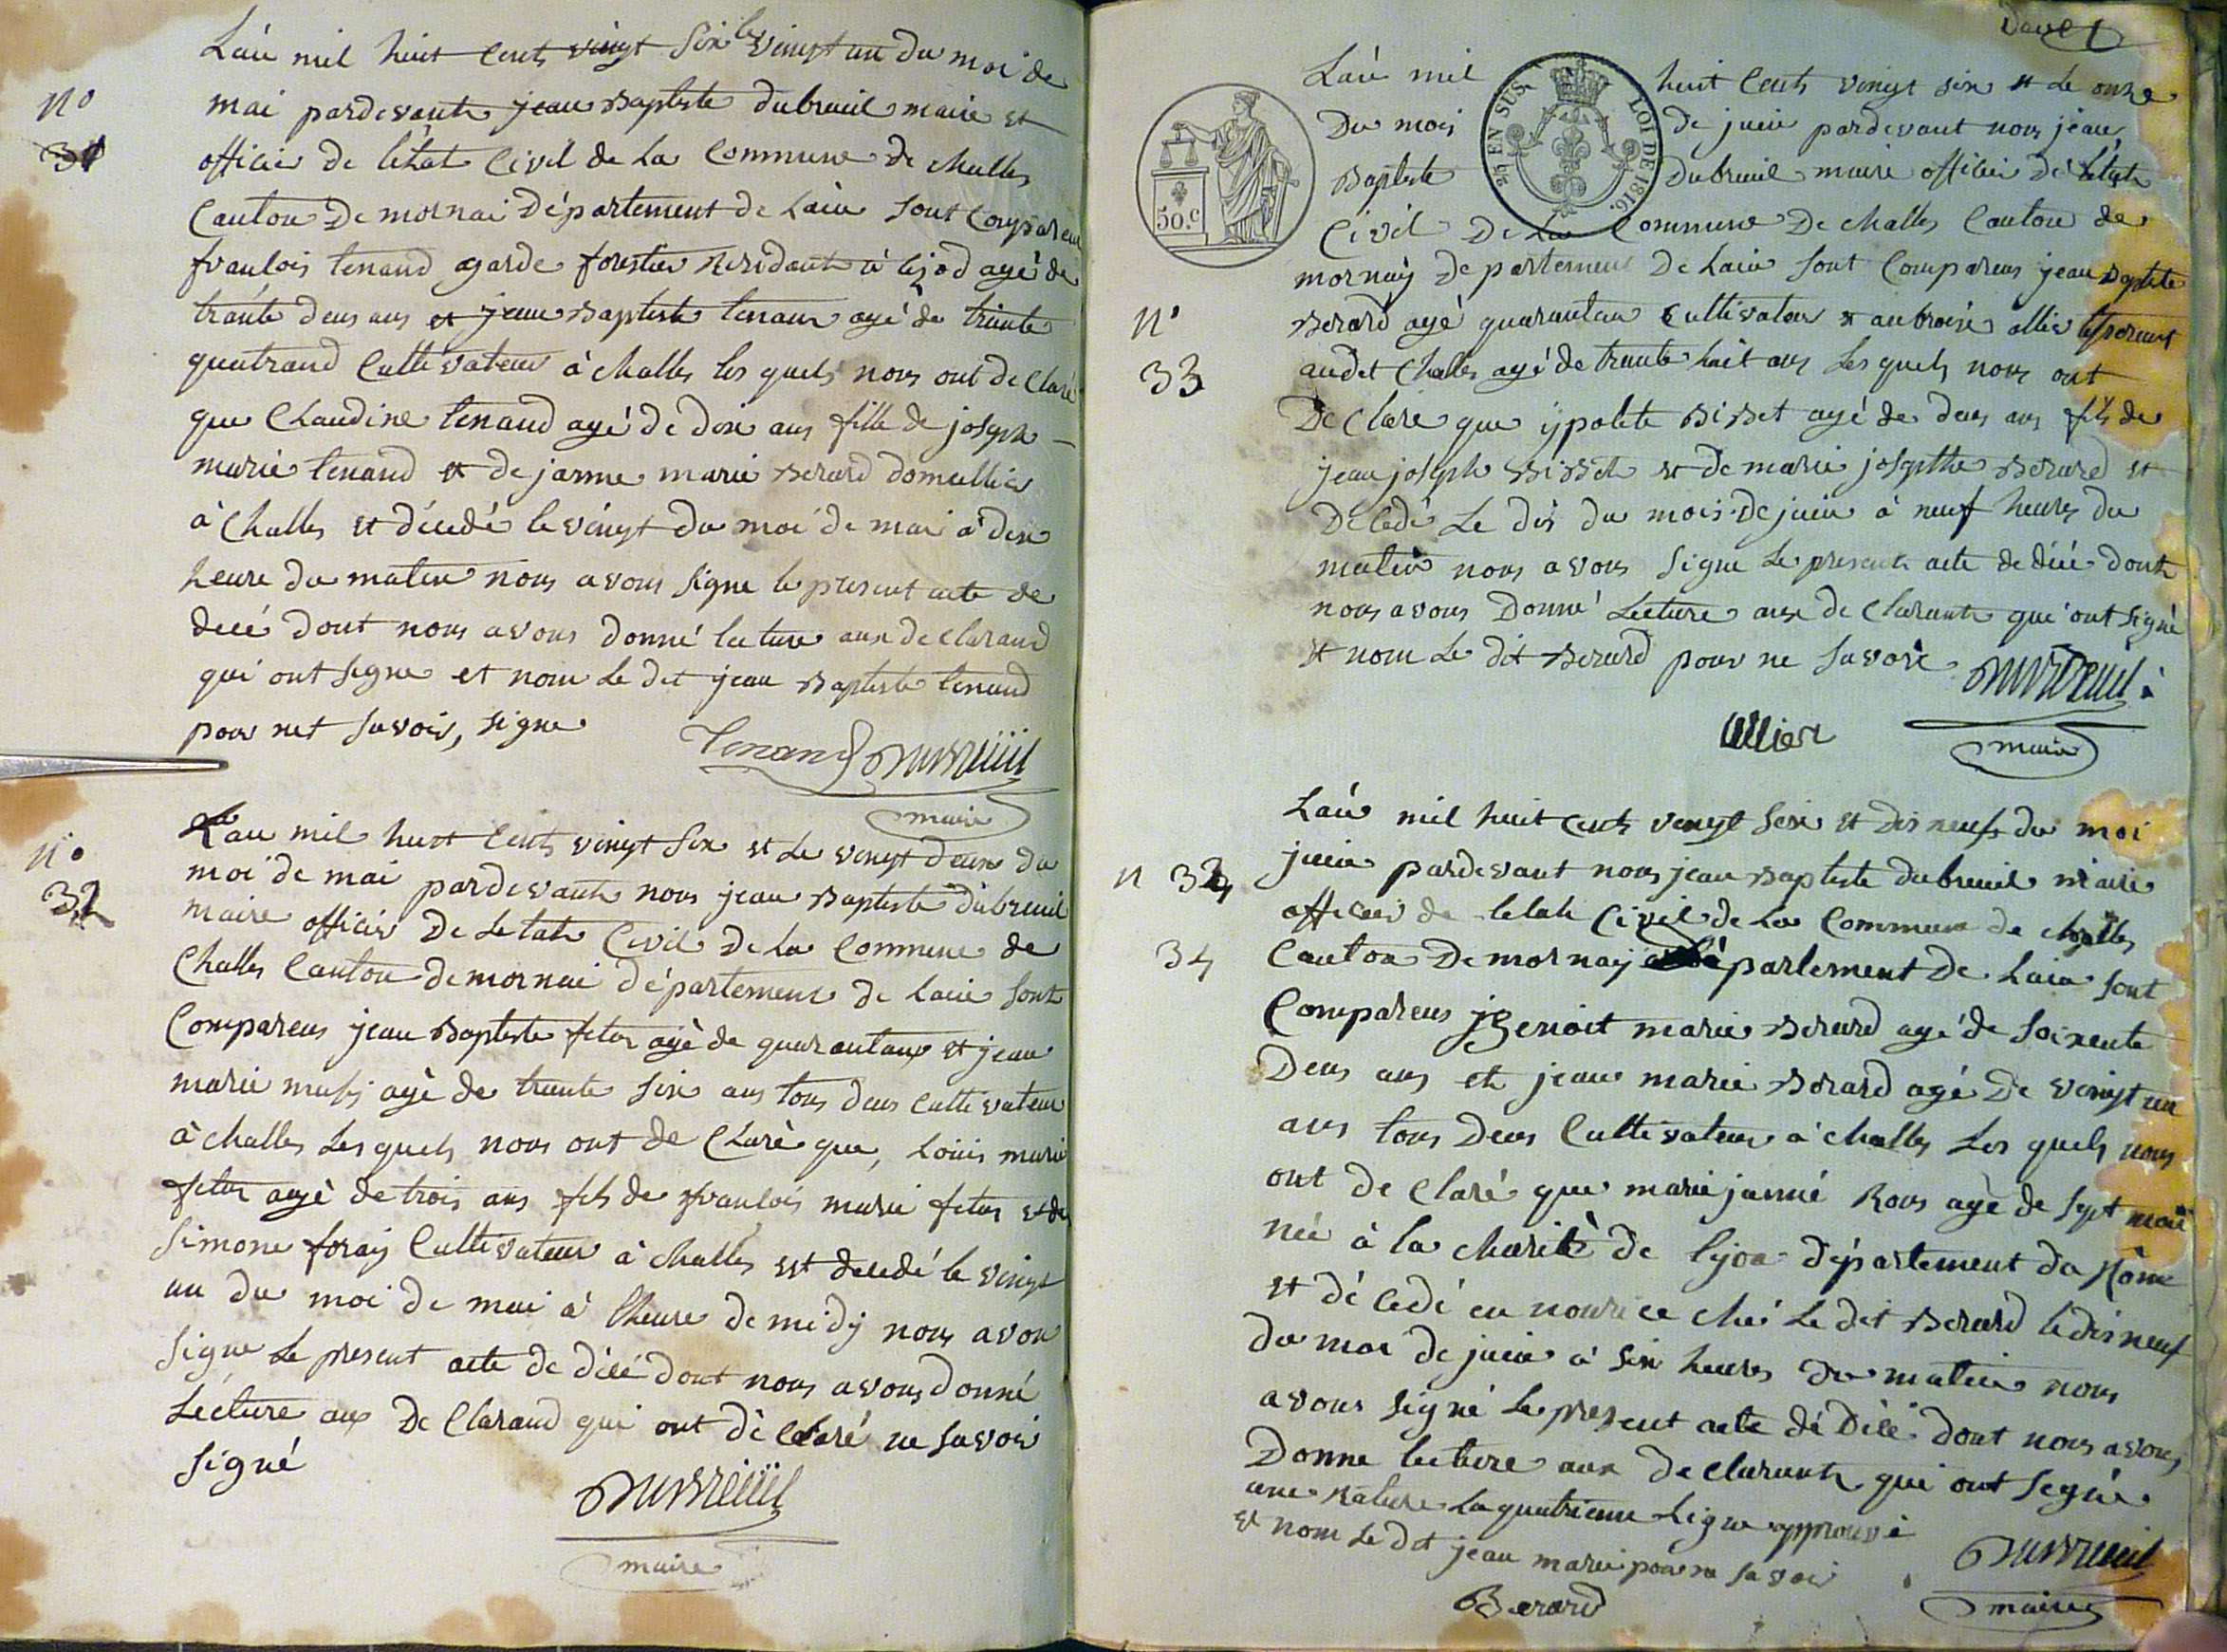 L'án mil huit Cents vingt Six le vingt un du moi de
mai pardevants jean Baptiste dubreuil maire et
officier de létat Civil de la Commune de challes
Canton De mornai Département de Lain sont Comparens
franlois tenand garde forestier Residant à lejod agé de
trante deus ans et jean Baptiste tenans agé de trante
quatrand Cultivateur à challes les quels nous ont de Claré
que Claudine tenand agé de dix ans fille de joseph
marie tenand et de janne marie Berard domecllies
à Challes et décedé le vingt du moi de mai à dix
heure du matin nous avons signe le present acte de
decé dont nous avons donné lecture aux declarand
qui ont signe et nom Le dit jean Baptiste tenand
pour net savoir, signe
Tenand Dubreüil
maire
N° 31
Lan mil huit Cents vingt six et Le vingt deux du
moi de mai pardevants nous jean Baptiste dubreuil
maire officier De Létat Civil De la Commune de
Challes Canton de mornai département de Lain sont
Comparens jean Baptiste fetas agè de quarantans et jean
marie agè de trante six ans tous deus Cultivateur
à challes Les quels nous ont de Claré que, Louis marie
fetas agè de trois ans fils de franlois marie fetas et de
simone foraÿ Cultivateur à challes est decedé le vingt
un du moi de mai à lheure de midÿ nous avon
signe Le present acte de décé dont nous avons donné
Lécture aux De Clarand qui ont dè Claré ne savoir
signé
Dubreüil
maire
N° 32
L'án mil huit Cents vingt six et Le onze
Du mois de juin pardevant nous jean
Baptiste Dubreuil maire officier de Létat
Civil De La Commune De challes Canton de
mornaÿ Departement De Lain sont Comparens jean Baptite
Berard agé quarantan Cultivateur et allier
audit Challes agé de trante huit ans Les quels nous ont
De Clare que ÿpolite Bisset agé de deus ans fils de
jean joseph Bisset et de marie josepthe Berard et
Décedé Le dis du mois De juin à neuf heures du
matin nous avons signe Le present acte de décé dont
nous avons Donné Lecture aux de Clarants qui ont signé
et nom Le dit Berard pour ne savoir Dubreuil
allier
maire
N° 33
EN SUS
LOI DE 1816.
50.c
L'án mil huit cents vingt six et dis neufs du moi
juin pardevant nous jean Baptiste dubreuil maire
officier de létat Civil de La Commune de challes
Canton De mornaÿ Département De Lain sont
Comparens Benoit marie Berard agé de soixente
Deus ans et jean marie Berard agé De vingt un
ans tous Deus Cultivateur à challes Les quels nous
ont de Claré que marie janné Rous agè de sept moi
née à la charité de lÿon département du Rône
et dé cedé en nourice ché Le dit Berard le dis neuf
du moi de juin à six heures du matin nous
avons signé Le present acte de décé dont nous avons
Donne lecture aux De clarants qui ont signé
une Rature La quatrieme Ligne approuvé
et nom Le dit jean marie pour ne savoir
Dubreuil
Berard
maire
N 34
34